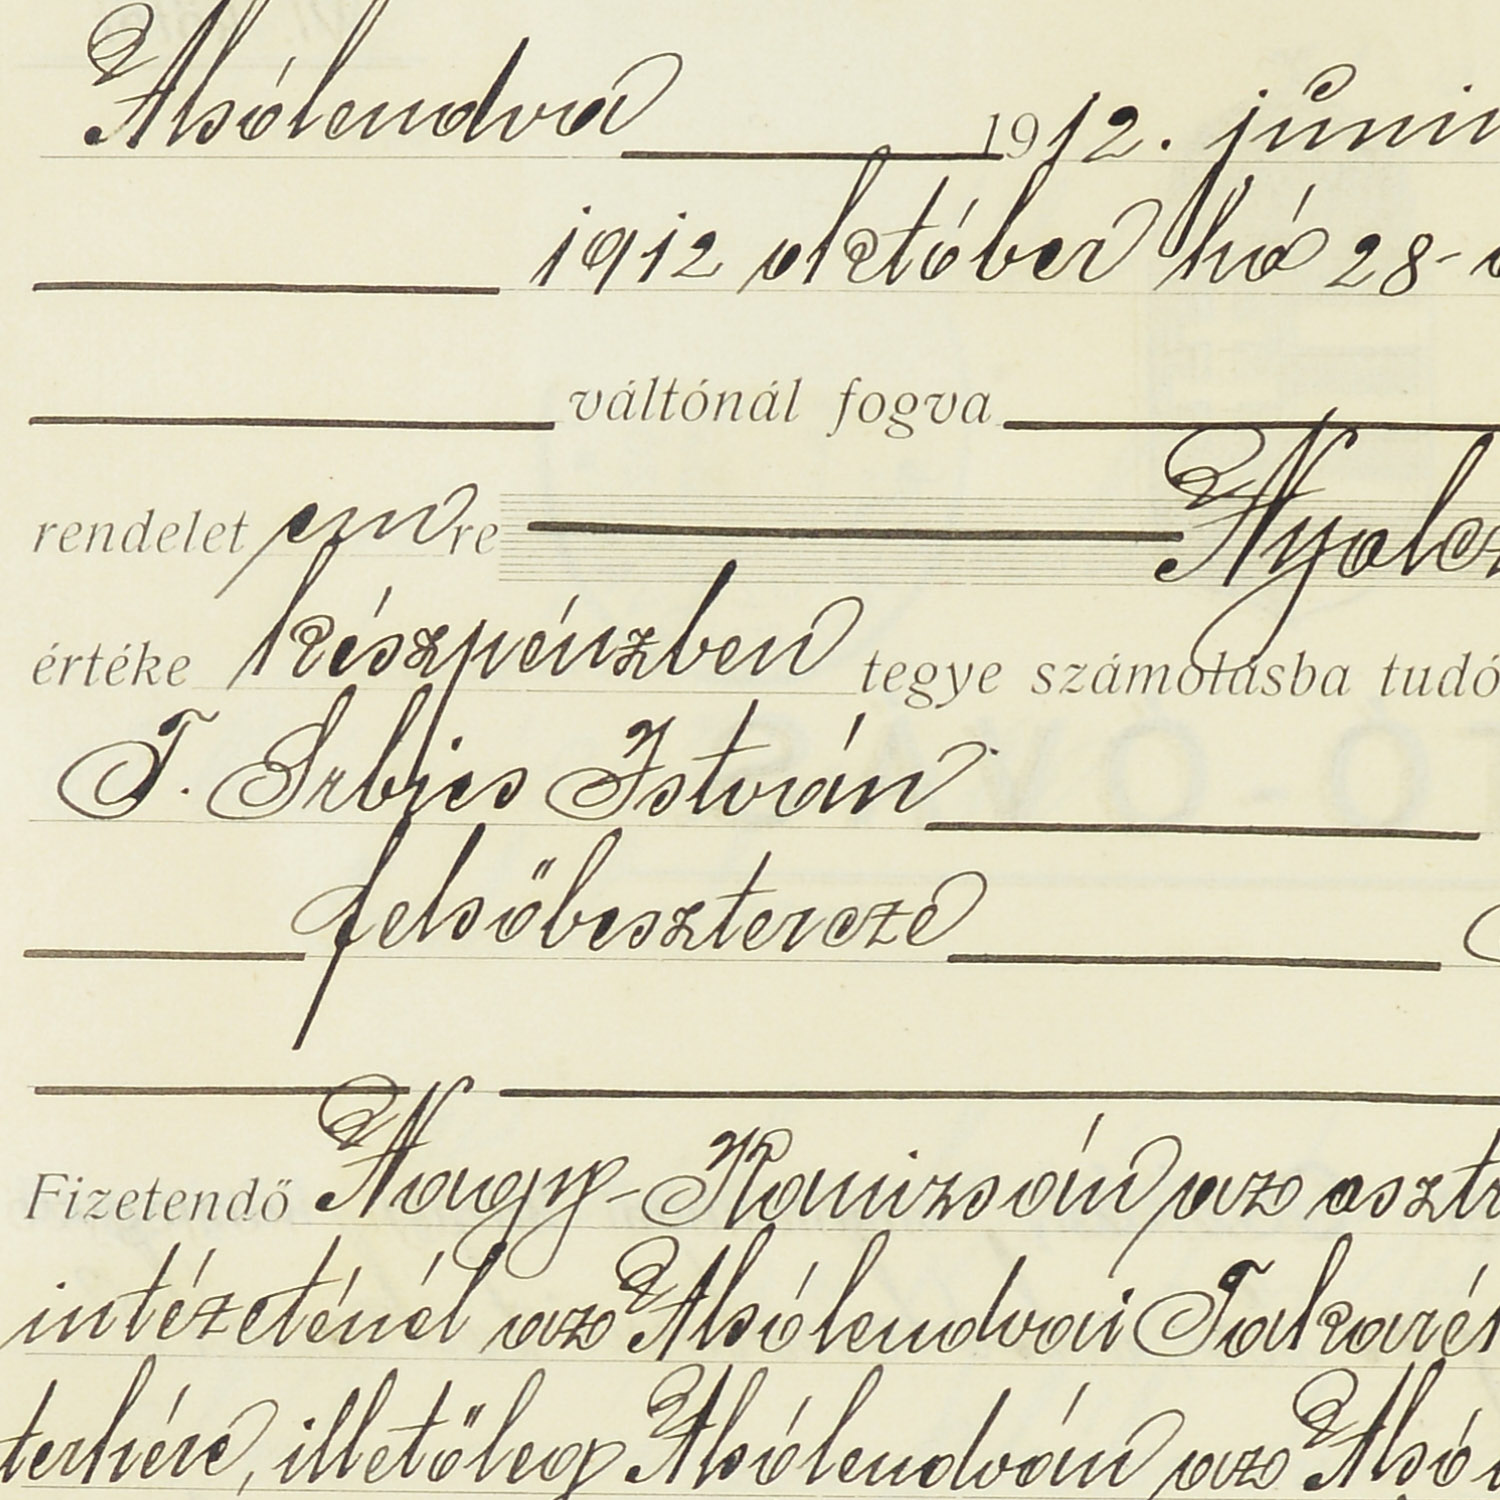 Alsólendva 1912. júni
1912 október hó 28-
váltónál fogva
rendelet em re Nyolcz
értéke készpénzben tegye számolásba tudó
T. Srbics István
felsőbesztercze
Fizetendő Nagy-Kanizsán az osztr
intézeténél az Alsólendvai Takaré
terhére, illetőleg Alsólendván az Alsó